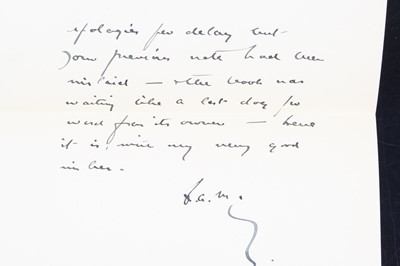 apologies for delay but
your previous note had been
mislaid — & the book was
waiting like a lost dog for
word from its owner — here
it is, with my very good
wishes.